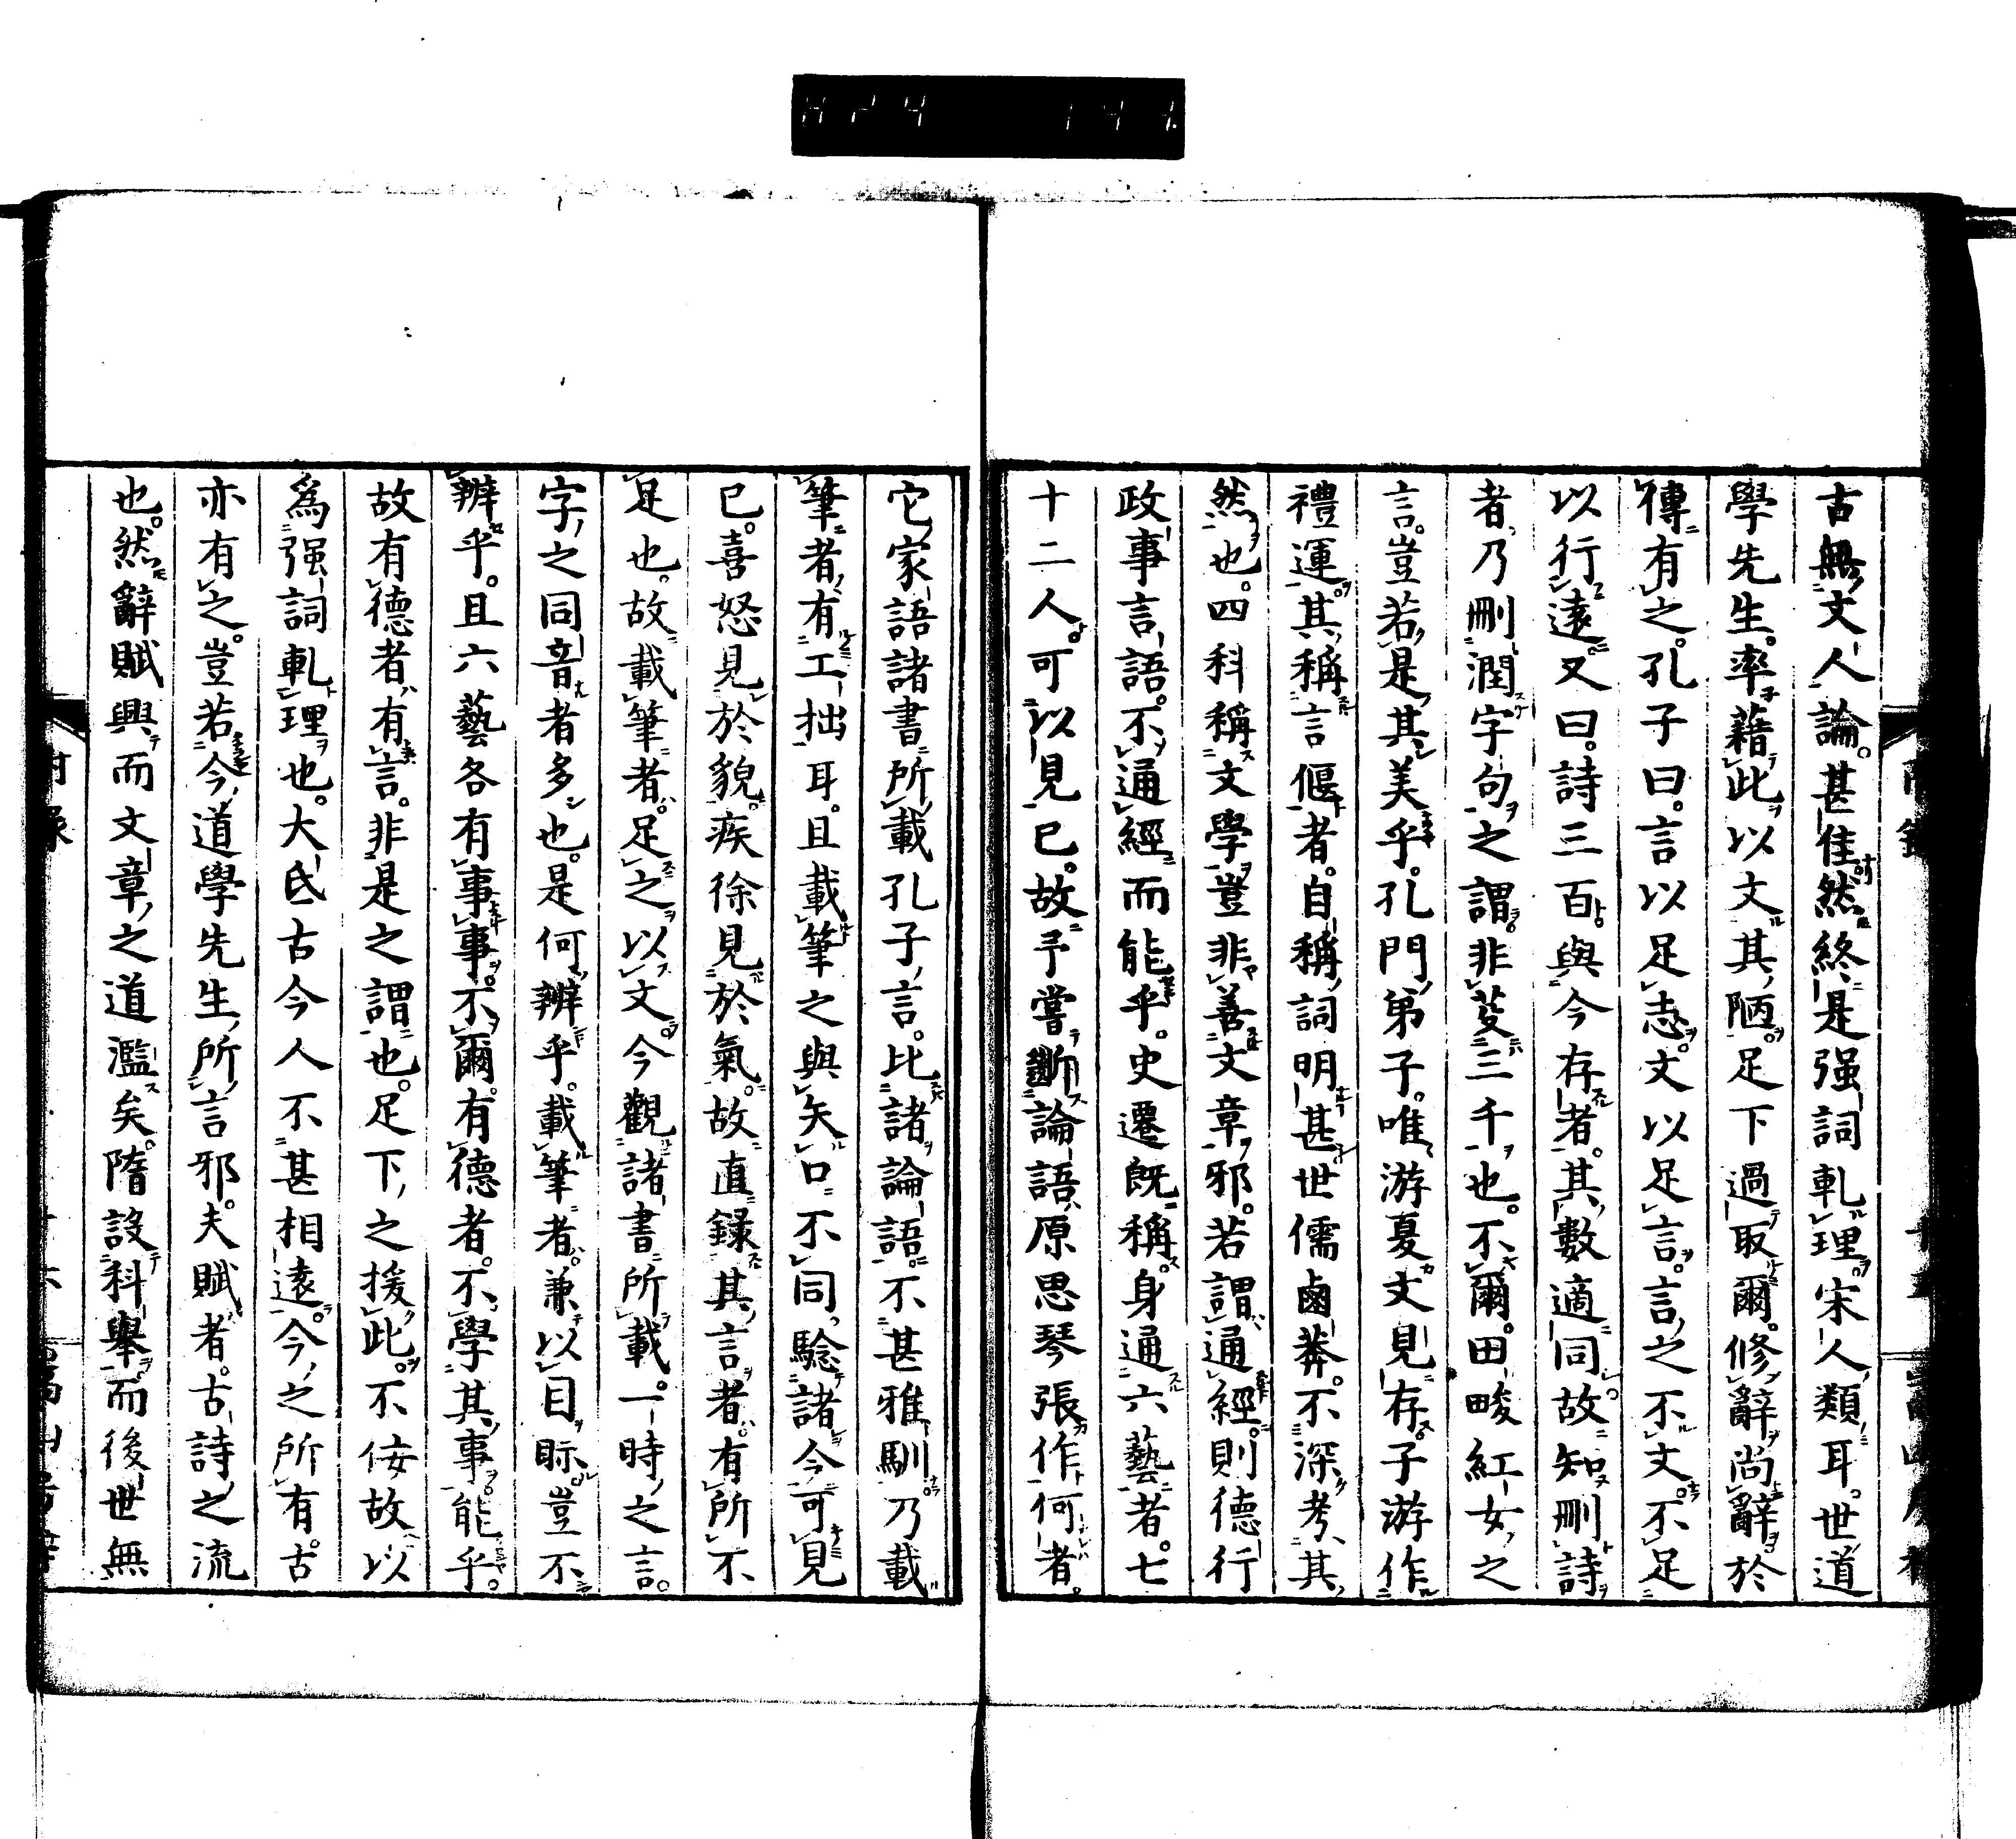 古無文人論。甚佳然終是强詞軋理宋人類耳。世道
學先生。率藉此以文其陋。足下過取爾。修辭尚辭於
傳有之。孔子曰。言以足志。文以足言。言之不文。不足
以行遠。又曰。詩三百。與今存者。其數適同。故知刪詩
者。乃刪潤字句之謂。非芟三千也。不爾。田畯紅女之
言。豈若是其美乎。孔門弟子。唯游夏文見存。子游作
禮運。其稱言偃者。自稱詞明甚。世儒鹵莽。不深考其
然也。四科稱文學。豈非善文章邪。若謂通經。則德行
政事言語。不通經而能乎。史遷既稱身通六藝者。七
十二人。可以見已。故予嘗斷論語原思琴張作。何者。
它家語諸書所載孔子言。比諸論語。不甚雅馴。乃載
筆者有工拙耳。且載筆之與矢口不同。驗諸今可見
已。喜怒見於貌。疾徐見於氣。故直錄其言者。有所不
足也。故載筆者。足之以文。今觀諸書所載。一時之言。
字之同音者多也。是何辨乎。載筆者。兼以目眎。豈不
辨乎。且六藝各有事事。不爾。有德者。不學其事。能乎。
故有德者有言。非是之謂也。足下之援此。不佞故以
爲强詞軋理也。大氐古今人不甚相遠。今之所有。古
亦有之。豈若今道學先生所言邪。夫賦者。古詩之流
也。然辭賦興而文章之道濫矣。隋設科舉。而後世無